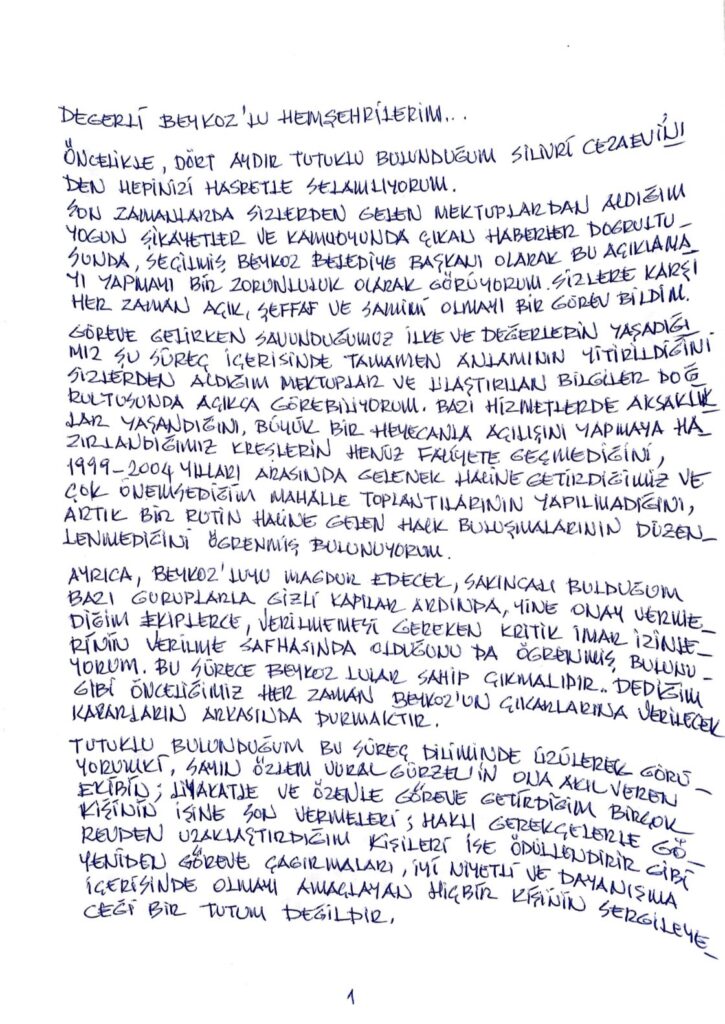 DEĞERLİ BEYKOZ'LU HEMŞEHRİLERİM...
ÖNCELİKLE, DÖRT AYDIR TUTUKLU BULUNDUĞUM SİLİVRİ CEZAEVİ'Nİ
DEN HEPİNİZİ HASRETLE SELAMLIYORUM.
SON ZAMANLARDA SİZLERDEN GELEN MEKTUPLARDAN ALDIĞIM
YOĞUN ŞİKAYETLER VE KAMUOYUNDA ÇIKAN HABERLER DOĞRULTU_
SUNDA, SEÇİLMİŞ BEYKOZ BELEDİYE BAŞKANI OLARAK BU AÇIKLAMA
YI YAPMAYI BİR ZORUNLULUK OLARAK GÖRÜYORUM. SİZLERE KARŞI
HER ZAMAN AÇIK, ŞEFFAF VE SAMİMİ OLMAYI BİR GÖREV BİLDİM.
GÖREVE GELİRKEN SAVUNDUĞUMUZ İLKE VE DEĞERLERİN YAŞADIĞI
MIZ ŞU SÜREÇ İÇERİSİNDE TAMAMEN ANLAMININ YİTİRİLDİĞİNİ
SİZLERDEN ALDIĞIM MEKTUPLAR VE ULAŞTIRILAN BİLGİLER DOĞ
RULTUSUNDA AÇIKÇA GÖREBİLİYORUM. BAZI HİZMETLERDE AKSAKLIK
LAR YAŞANDIĞINI, BÜYÜK BİR HEYECANLA AÇILIŞINI YAPMAYA HA_
ZIRLANDIĞIMIZ KREŞLERİN HENÜZ FALİYETE GEÇMEDİĞİNİ,
1999-2004 YILLARI ARASINDA GELENEK HALİNE GETİRDİĞİMİZ VE
ÇOK ÖNEMSEDİĞİM MAHALLE TOPLANTILARININ YAPILMADIĞINI,
ARTIK BİR RUTİN HALİNE GELEN HALK BULUŞMALARININ DÜZEN_
LENMEDİĞİNİ ÖĞRENMİŞ BULUNUYORUM.
AYRICA, BEYKOZ'LUYU MAĞDUR EDECEK, SAKINCALI BULDUĞUM
BAZI GURUPLARLA GİZLİ KAPILAR ARDINDA, YİNE ONAY VERME_
DİĞİM EKİPLERCE, VERİLMEMESİ GEREKEN KRİTİK İMAR İZİNLE_
RİNİN VERİLME SAFHASINDA OLDUĞUNU DA ÖĞRENMİŞ BULUNU_
YORUM. BU SÜRECE BEYKOZ'LULAR SAHİP ÇIKMALIDIR.. DEDİĞİM
GİBİ ÖNCELİĞİMİZ HER ZAMAN BEYKOZ'UN ÇIKARLARINA VERİLECEK
KARARLARIN ARKASINDA DURMAKTIR.
TUTUKLU BULUNDUĞUM BU SÜREÇ DİLİMİNDE ÜZÜLEREK GÖRÜ_
YORUMKİ, SAYIN ÖZLEM VURAL GÜRZEL'İN ONA AKIL VEREN
EKİBİN; LİYAKATLE VE ÖZENLE GÖREVE GETİRDİĞİM BİRÇOK
KİŞİNİN İŞİNE SON VERMELERİ; HAKLI GEREKÇELERLE GÖ_
REVDEN UZAKLAŞTIRDIĞIM KİŞİLERİ İSE ÖDÜLLENDİRİR GİBİ
YENİDEN GÖREVE ÇAĞIRMALARI, İYİ NİYETLİ VE DAYANIŞMA
İÇERİSİNDE OLMAYI AMAÇLAYAN HİÇBİR KİŞİNİN SERGİLEYE_
CEĞİ BİR TUTUM DEĞİLDİR.
1